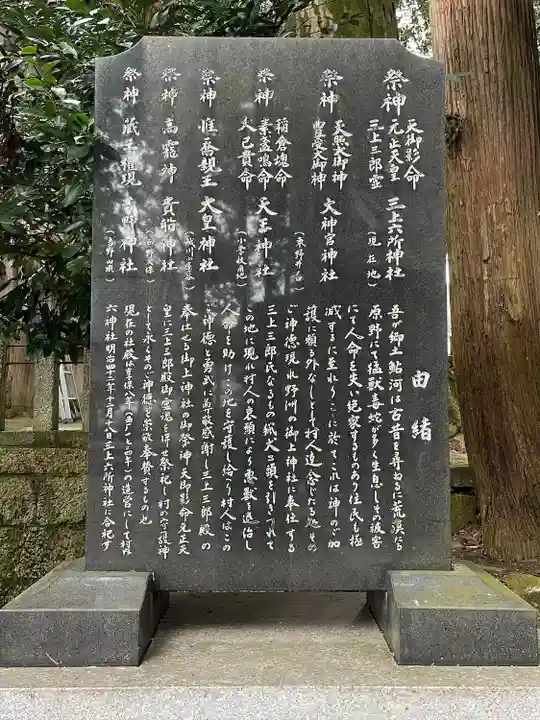 由緒
吾が郷土鮎河は古昔を尋ねるに荒漠たる
原野にて猛獣毒蛇が多く生息しその被害
にて人命を失い絶家するものあり住民も極
減するに至れりここに於てこれは神のご加
護に頼る外なしとして村人達念じたる処その
ご神徳現れ野洲の御上神社に奉仕する
三上三郎氏なるもの猟犬二頭を引きつれて
この地に現れ村人の哀願により悪獣を退治し
人命を助けこの地を守護し給う村人はこの
ご神徳と勇武に高丁敬感謝し三上三郎殿の
奉仕せる御上神社の御祭神天御影命元正天
皇に三上三郎殿御霊魂を併せ祭祀し村の守護神
として永くそのご神徳を崇敬奉賛するもの也
現在の社殿は享保八年の造営にして
六神社明治四十二年十二月十八日三上六所神社に合祀す
祭神 天御影命 元正天皇 三上三郎霊 三上六所神社 (現在地)
祭神 天照大御神 豊受大御神 大神宮神社
祭神 稲倉塊命 素盞嗚命 大己貴命 天王神社
祭神 惟喬親王 大皇神社
祭神 高龗神 貴船神社
祭神 蔵王権現 吉野神社